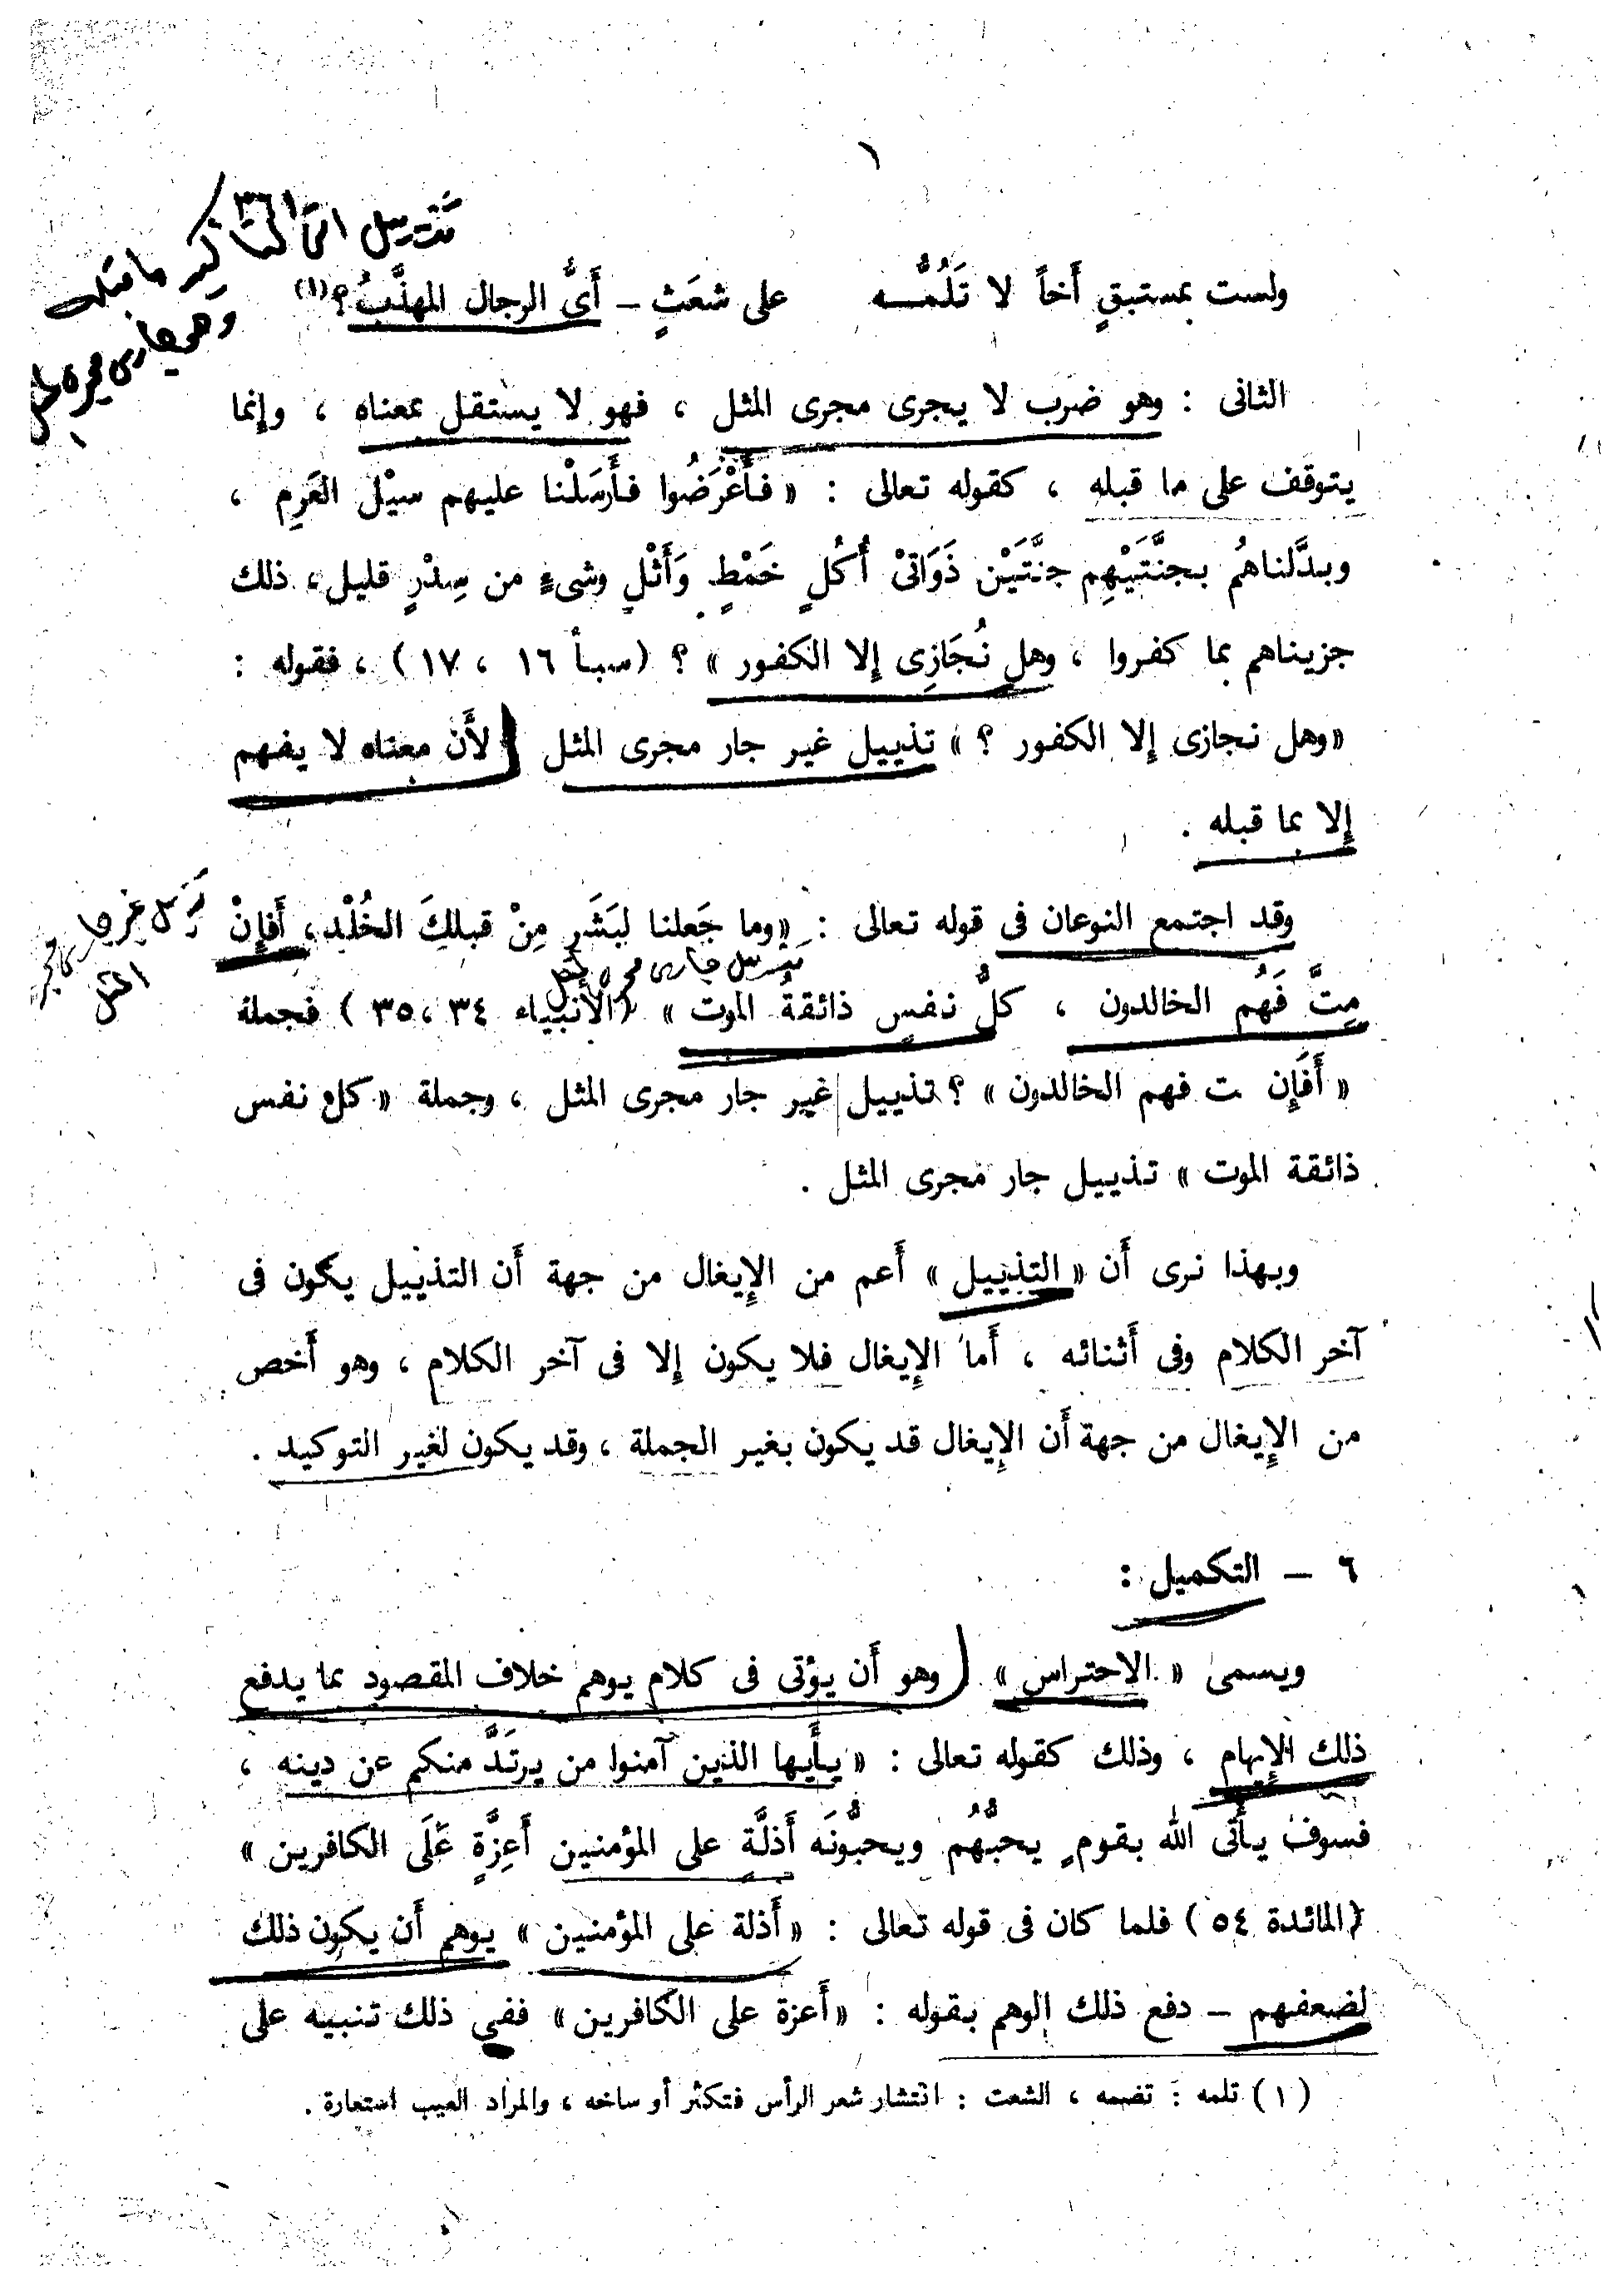 ولست بمستبقٍ أَخاً لا تَلُمُّـــه على شعَثٍ – أَىُّ الرجال المهذَّبُ؟(١)
الثانى : وهو ضرب لا يجرى مجرى المثل ، فهو لا يستقل بمعناه ، وإنما
يتوقف على ما قبله ، كقوله تعالى : « فأَعْرَضُوا فأَرسَلْنا عليهم سيْل العَرِم ،
وبدَّلناهُم بجنَّتَيْهِم جنَّتَيْن ذَوَاتىْ أُكُلٍ خَمْطٍ وَأَثْلٍ وشىءٍ من سِدْرٍ قليل ، ذلك
جزيناهم بما كفروا ، وهل نُجَازِى إلا الكفور » ؟ (سبأ ١٦ ، ١٧) ، فقوله :
«وهل نجازى إلا الكفور ؟ » تذييل غير جار مجرى المثل لأَن معناه لا يفهم
إلا بما قبله .
وقد اجتمع النوعان فى قوله تعالى : «وما جَعلنا لبَشَرٍ مِنْ قبلكَ الخُلْد، أَفإِنْ
تذييل جارى مجرى المثل
مِتَّ فَهُم الخالدون ، كلُّ نفسٍ ذائقةُ الموت » (الأنبياء ٣٤ ،٣٥ ) فجملة
« أَفَإِن ت فهم الخالدون » ؟ تذييل غير جار مجرى المثل ، وجملة « كل نفس
ذائقة الموت » تذييل جار مجرى المثل .
وبهذا نرى أَن « التذييل » أَعم من الإِيغال من جهة أَن التذييل يكون فى
آخر الكلام وفى أَثنائه ، أَما الإِيغال فلا يكون إلا فى آخر الكلام ، وهو أَخص
من الإِيغال من جهة أَن الإِيغال قد يكون بغير الجملة ، وقد يكون لغير التوكيد .
٦ – التكميل :
ويسمى « الاحتراس » وهو أَن يؤتى فى كلام يوهم خلاف المقصود بما يدفع
ذلك الإِيهام ، وذلك كقوله تعالى : « يأَيها الذين آمنوا من يرتَدَّ منكم عن دينه ،
فسوف يأتى الله بقومٍ يحبُّهُم ويحبُّونَه أَذلَّةٍ على المؤمنين أَعِزَّةٍ عَلَى الكافرين »
(المائدة ٥٤ ) فلما كان فى قوله تعالى : « أَذلة على المؤمنين » يوهم أَن يكون ذلك
لضعفهم – دفع ذلك الوهم بقوله : «أَعزة على الكافرين» ففى ذلك تنبيه على
(١) تلمه : تضمه ، الشعث : انتشار شعر الرأس فتكثر أوساخه ، والمراد العيب استعارة .